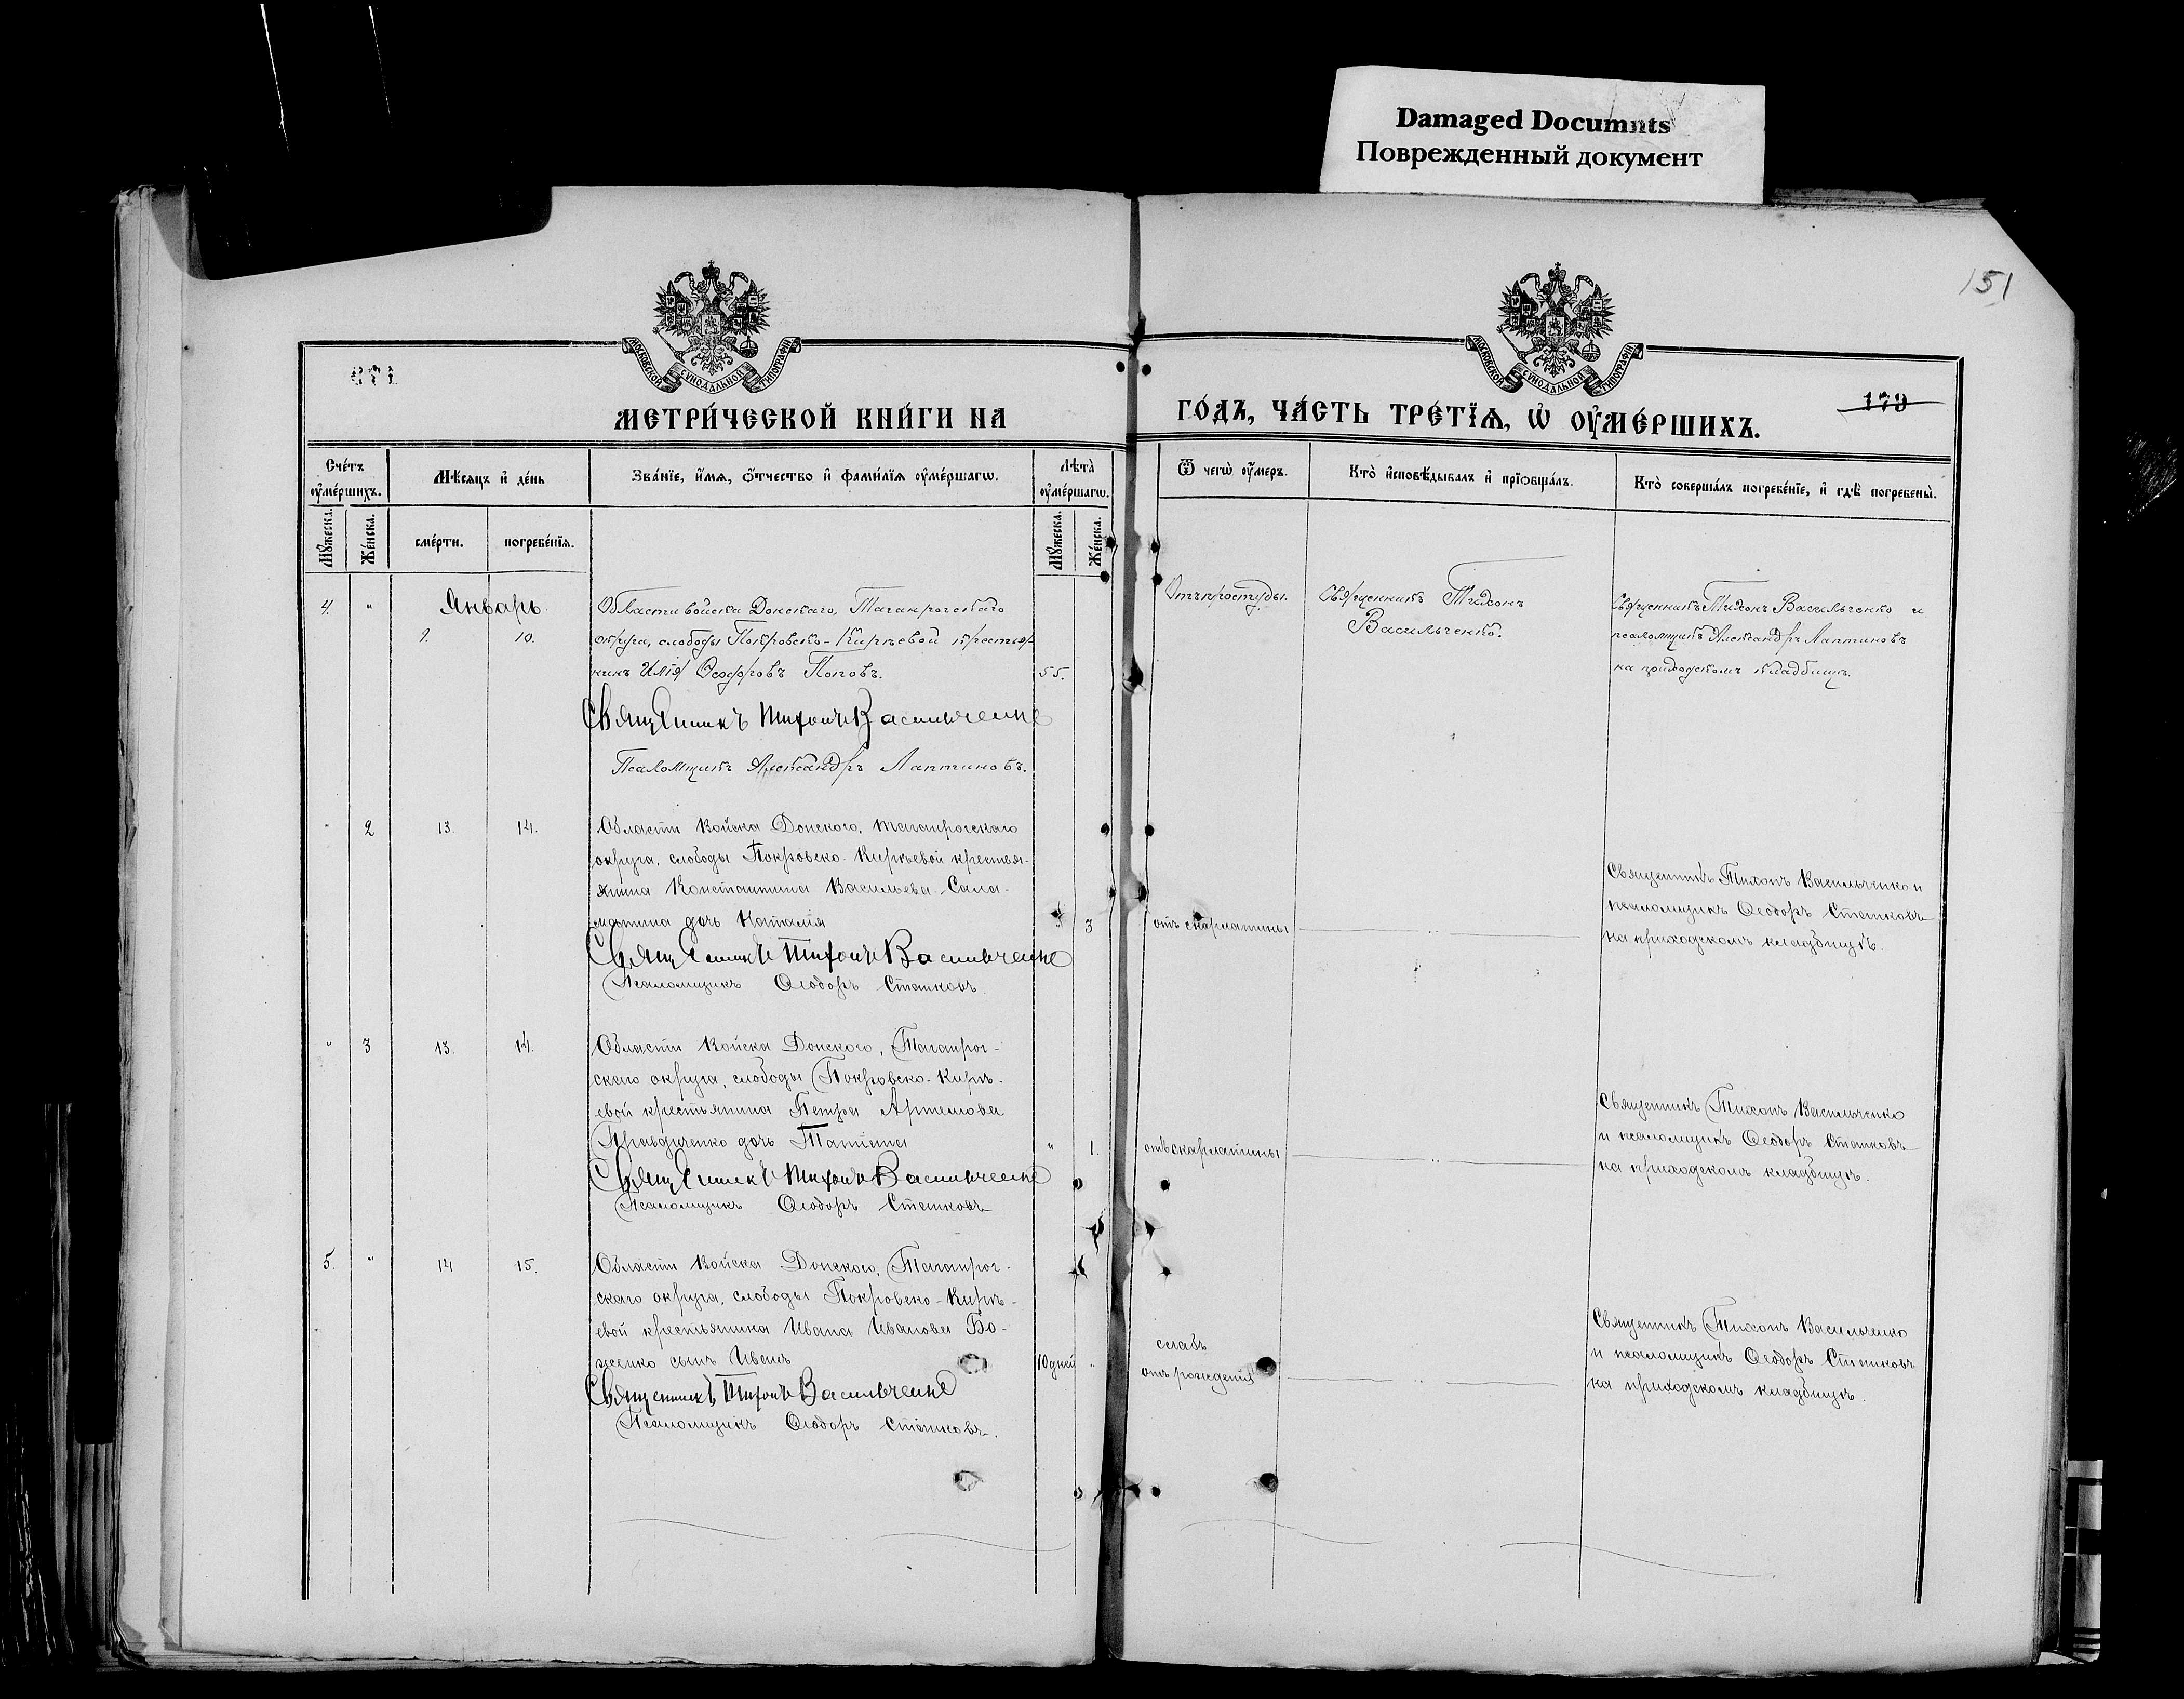 Damaged Documnts
Поврежденный документ
151
МОСКОВСКОЙ СѴНОДАЛЬНОЙ ТИПОГРАФІИ
МОСКОВСКОЙ СѴНОДАЛЬНОЙ ТИПОГРАФІИ
179
МЕТРИ́ЧЕСКОЙ КНИ́ГИ НА
ГО́ДЪ, ЧА́СТЬ ТРЕ́ТЇѦ, Ѡ҆ ОУ҆МЕ́РШИХЪ.
Сче́тъ оу҆ме́ршихъ.
Мѣ́сяцъ и҆ де́нь
Зва́нїе, и҆́мѧ, ѻ҆́тчество и҆ фамилїѧ оу҆ме́ршагѡ.
Лѣ́та̀ оу҆ме́ршагѡ.
Ѿ чегѡ̀ оу҆́меръ.
Кто̀ и҆сповѣ́дывалъ и҆ прїобща́лъ.
Кто̀ соверша́лъ погребе́нїе, и҆ гдѣ̀ погребены̀.
Мꙋ́жеска.
Же́нска.
сме́рти.
погребе́нїѧ.
Мꙋ́жеска.
Же́нска.
4. " Январь
9. 10.
Области войска Донскаго, Таганрогскаго
округа, слободы Покровско-Кирѣевой крестья-
нинъ Илія Ѳеодоровъ Поповъ. 55.
Священникъ Тихонъ Васильченко
Псаломщикъ Александръ Лаптиновъ.
Отъ простуды.
Священникъ Тихонъ
Васильченко.
Священникъ Тихонъ Васильченко и
псаломщикъ Александръ Лаптиновъ
на приходскомъ кладбищѣ.
" 2 13. 14.
Области Войска Донского, Таганрогскаго
округа, слободы Покровско-Кирѣевой крестья-
янина Константина Васильева Сала-
матина дочь Наталія 3
Священникъ Тихонъ Васильченко
Псаломщикъ Ѳеодоръ Сташковъ
отъ скарлатины
Священникъ Тихонъ Васильченко и
псаломщикъ Ѳеодоръ Сташковъ
на приходскомъ кладбищѣ.
" 3 13. 14.
Области Войска Донского, Таганрог-
скаго округа, слободы Покровско-Кирѣ-
евой крестьянина Петра Артемова
Правдиченко дочь Татіана " 1.
Священникъ Тихонъ Васильченко
Псаломщикъ Ѳеодоръ Сташковъ
отъ скарлатины
Священникъ Тихонъ Васильченко
и псаломщикъ Ѳеодоръ Сташковъ
на приходскомъ кладбищѣ.
5. " 14 15.
Области Войска Донского, Таганрог-
скаго округа, слободы Покровско-Кирѣ-
евой крестьянина Ивана Иванова Бо-
женко сынъ Иванъ 10 дней "
Священникъ Тихонъ Васильченко
Псаломщикъ Ѳеодоръ Сташковъ.
слабъ
отъ рожденія
Священникъ Тихонъ Васильченко
и псаломщикъ Ѳеодоръ Сташковъ
на приходскомъ кладбищѣ.